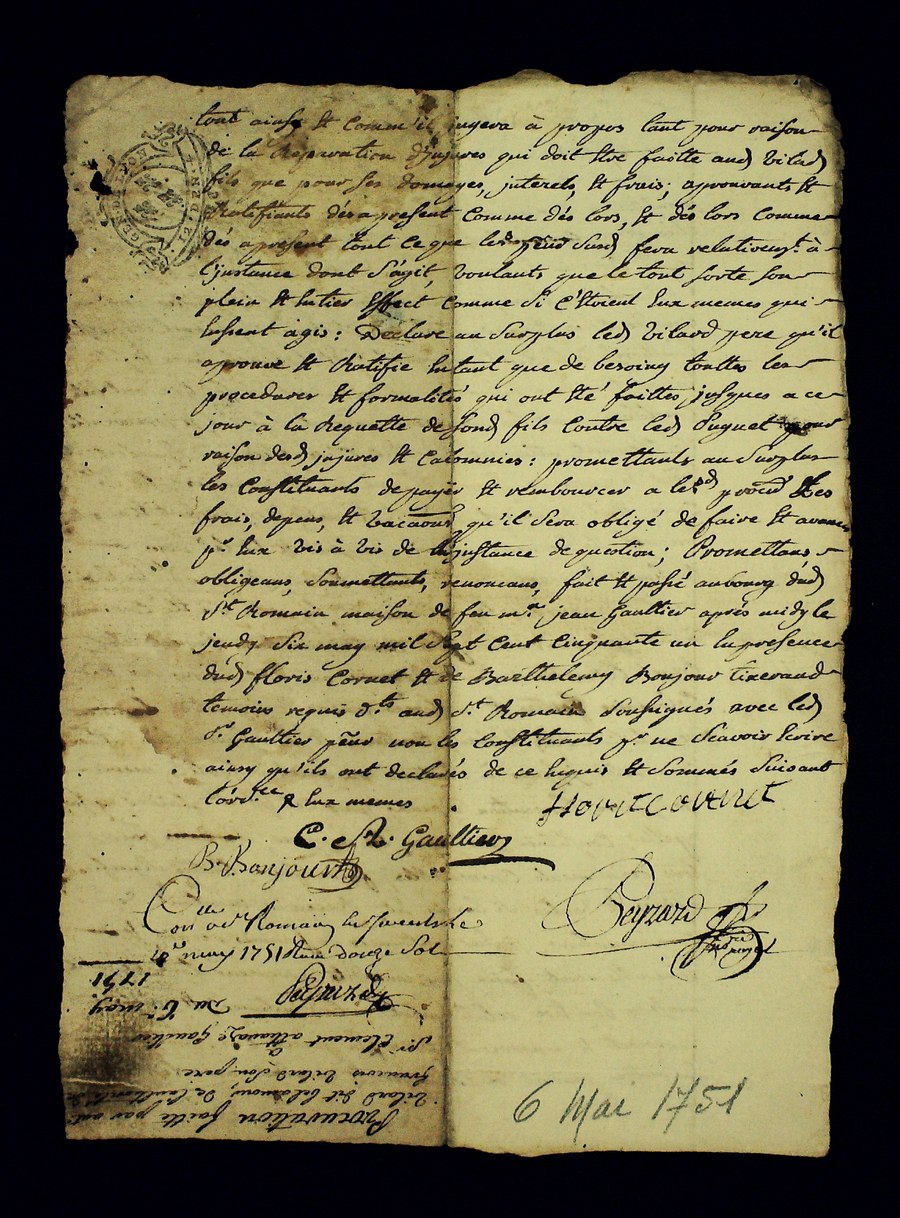 GEN DE LYON
12 DEN
tout ainsy et comm'il jugera à propos tant pour raison
de la Reparation d'injures qui doit être faitte aud Vilard
fils que pour ses domages, interets, et frais; aprouvants et
Ratifiants dès a present comme dès lors, et dès lors comme
dès a present tout ce que led susd fera relativemt. à
l'instance dont s'agit, voulants que le tout sorte son
plein et entier Effect comme si c'étoient Eux memes qui
Eussent agis: Declare au surplus led Vilard pere qu'il
aprouve et Ratifie Entant que de besoing touttes les
procedures et formalités qui ont été faittes jusques a ce
jour à la Requette de sond fils Contre led Puguet pour
raison desd injures et Calomnies: promettants au Surplus
les Constituants de payër et rembourcer a led procur et les
frais, depens, et vacaons qu'il sera obligé de faire et avancer
pr. Eux vis à vis de l'instance de question; Promettans
obligeans, Soumettants, renoncans, fait et passé au bourg dud
St. Romain maison de feu mre. jean Gaultier après midy le
jeudy Six may mil Sept Cent Cinquante un En presence
dud floris Cornet et de Barthelemy Bonjour tixerand
temoins requis dts aud St. Romain Soussignés avec led
Sr. Gaultier non les Constituants pr. ne Scavoir Ecrire
ainsy qu'ils ont declarés de ce Enquis et Sommés Suivant
l'ordce & Eux memes
florit cornet
C. A. Gaultier
B. Bonjour
Beyrard
Conlle a St Romain
may 1751 Recu douze Sols
Beyrard
Du 6e. may
1751
Procuration faitte par ant
Vilard dit
francois Vilard Son pere
a
Sr. Clement Gaultier
6 Mai 1751